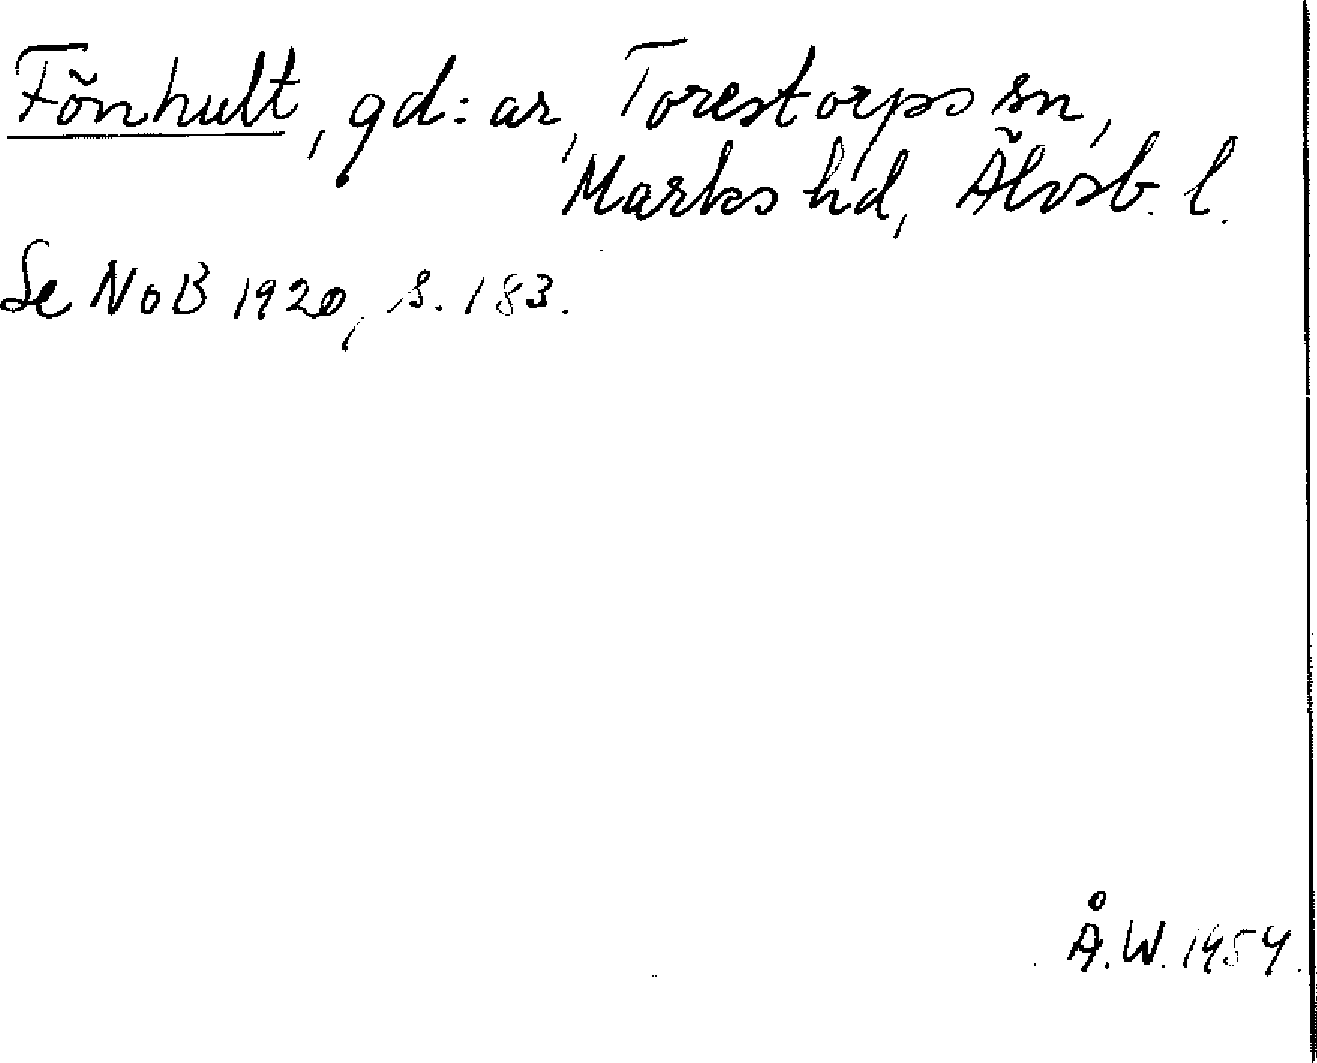 Fönhult, gd:ar, Torestorps sn,
Marks hd, Älvsb. l.
Se NoB 1920, s. 183.
Å.W. 1954.